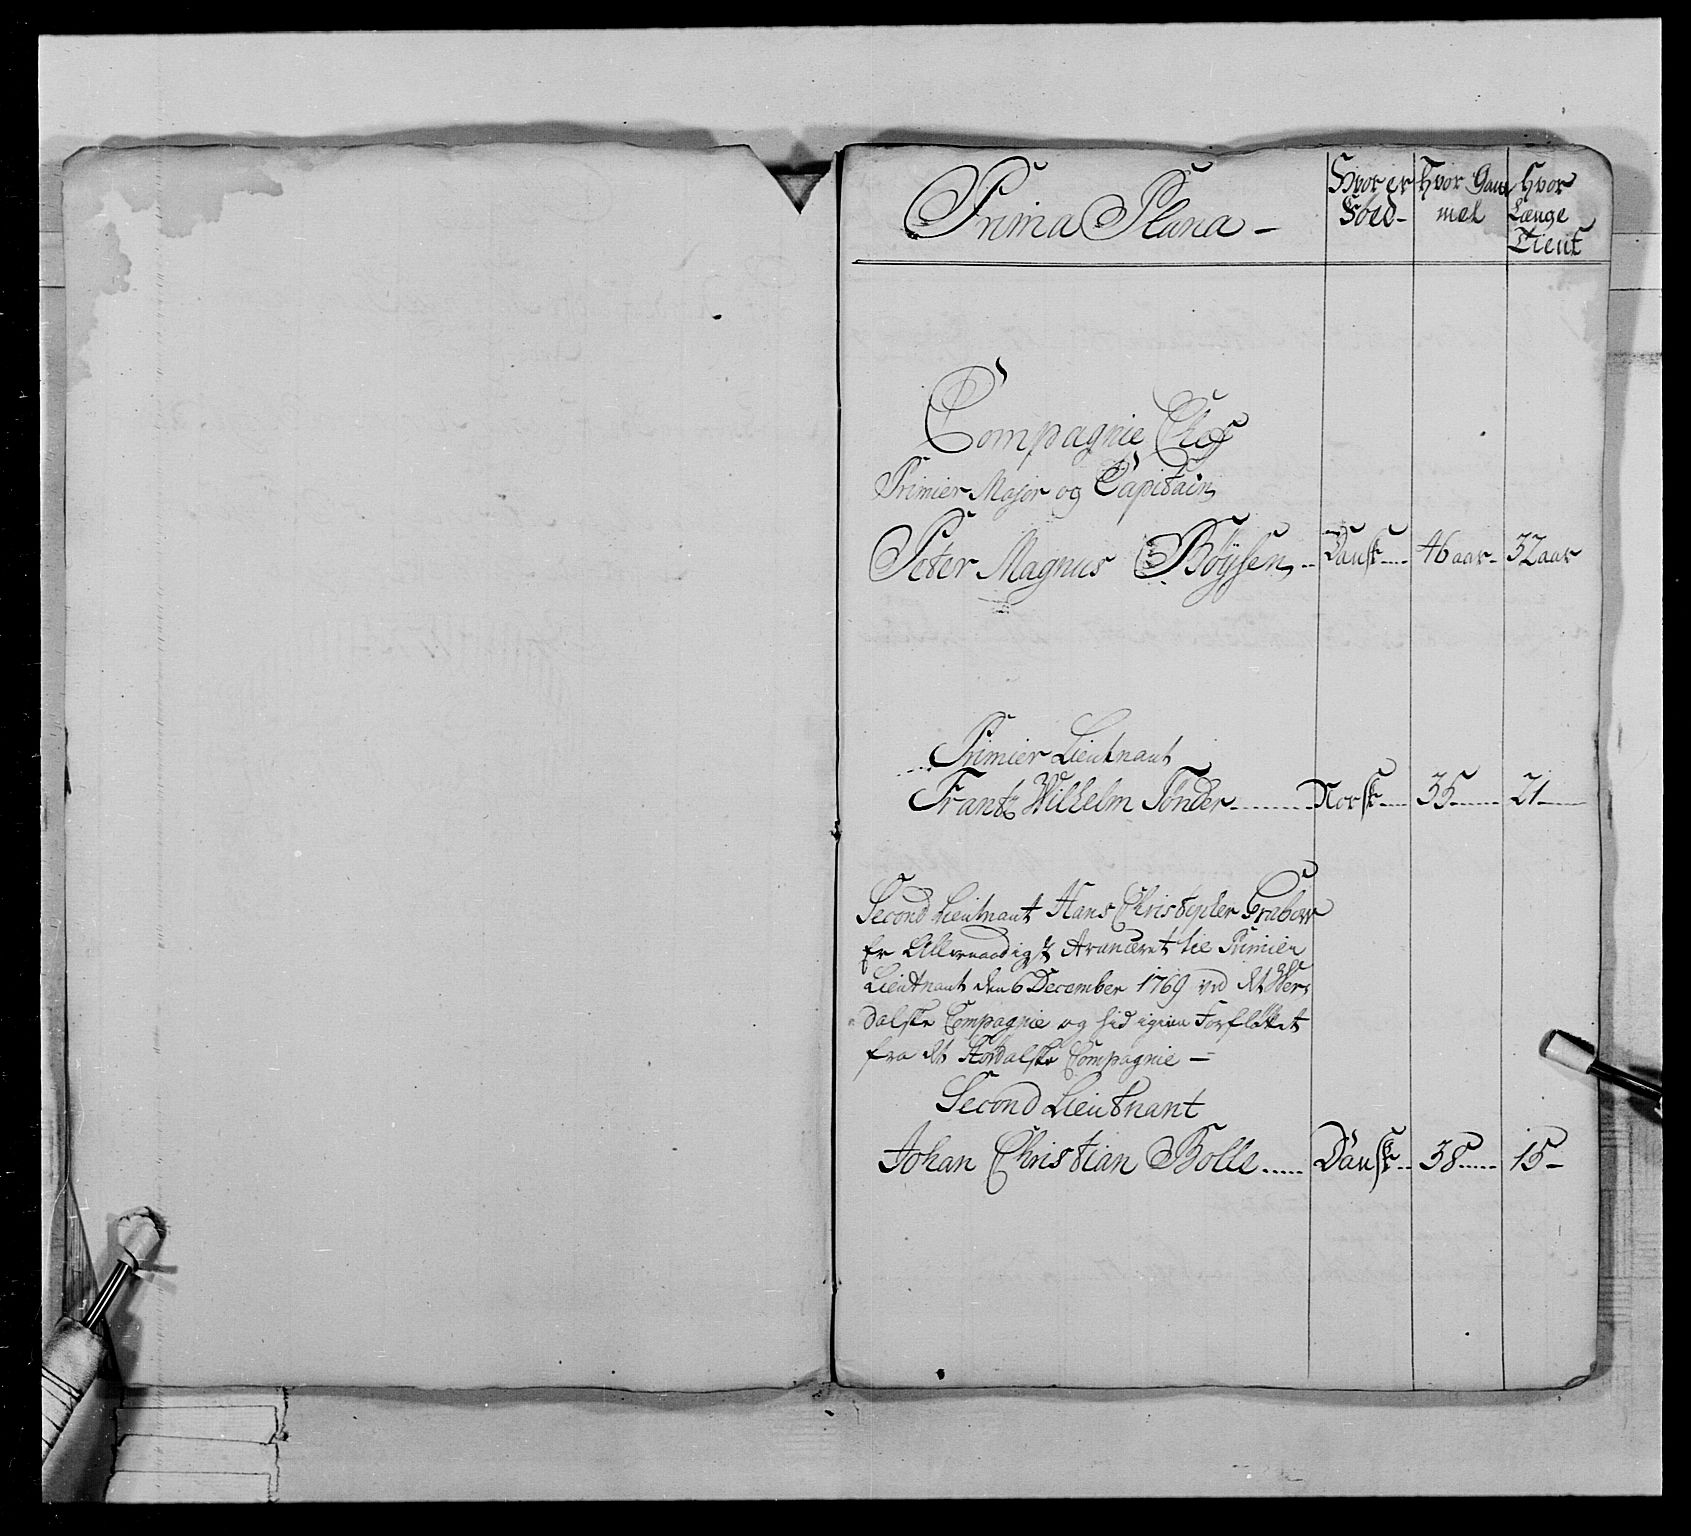 Prima Plana -
Hvor er
Föed-
Hvor Gam
mel
Hvor
Længe
Tient
Compagnie Chef
Primier Major og Capitain
Peter Magnus Böÿsen .. Dansk .... 46 aar- 32 aar
Primier Lieutnant
Frantz Wilhelm Tönder ........ Norsk .... 35 ...... 21 ....
Second Lieutnant Hans Christopher Grabow
Er Allernaadigst Avanceret til Primier
Lieutnant den 6 December 1769 ved det Wer-
dalske Compagnie og hid igien Forflöttet
fra det Compagnie -
Second Lieutnant
Johan Christian Bolle ..... Dansk .. 38 ..... 15 -